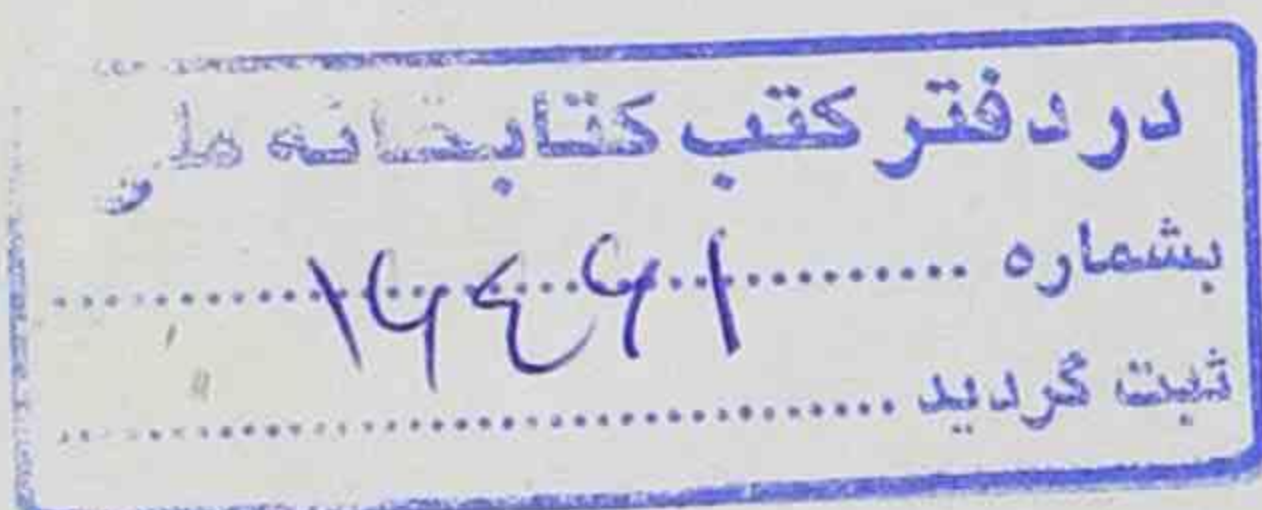 در دفتر کتب کتابخانه ملی
بشماره ۱۶۴۶۱
ثبت گردید